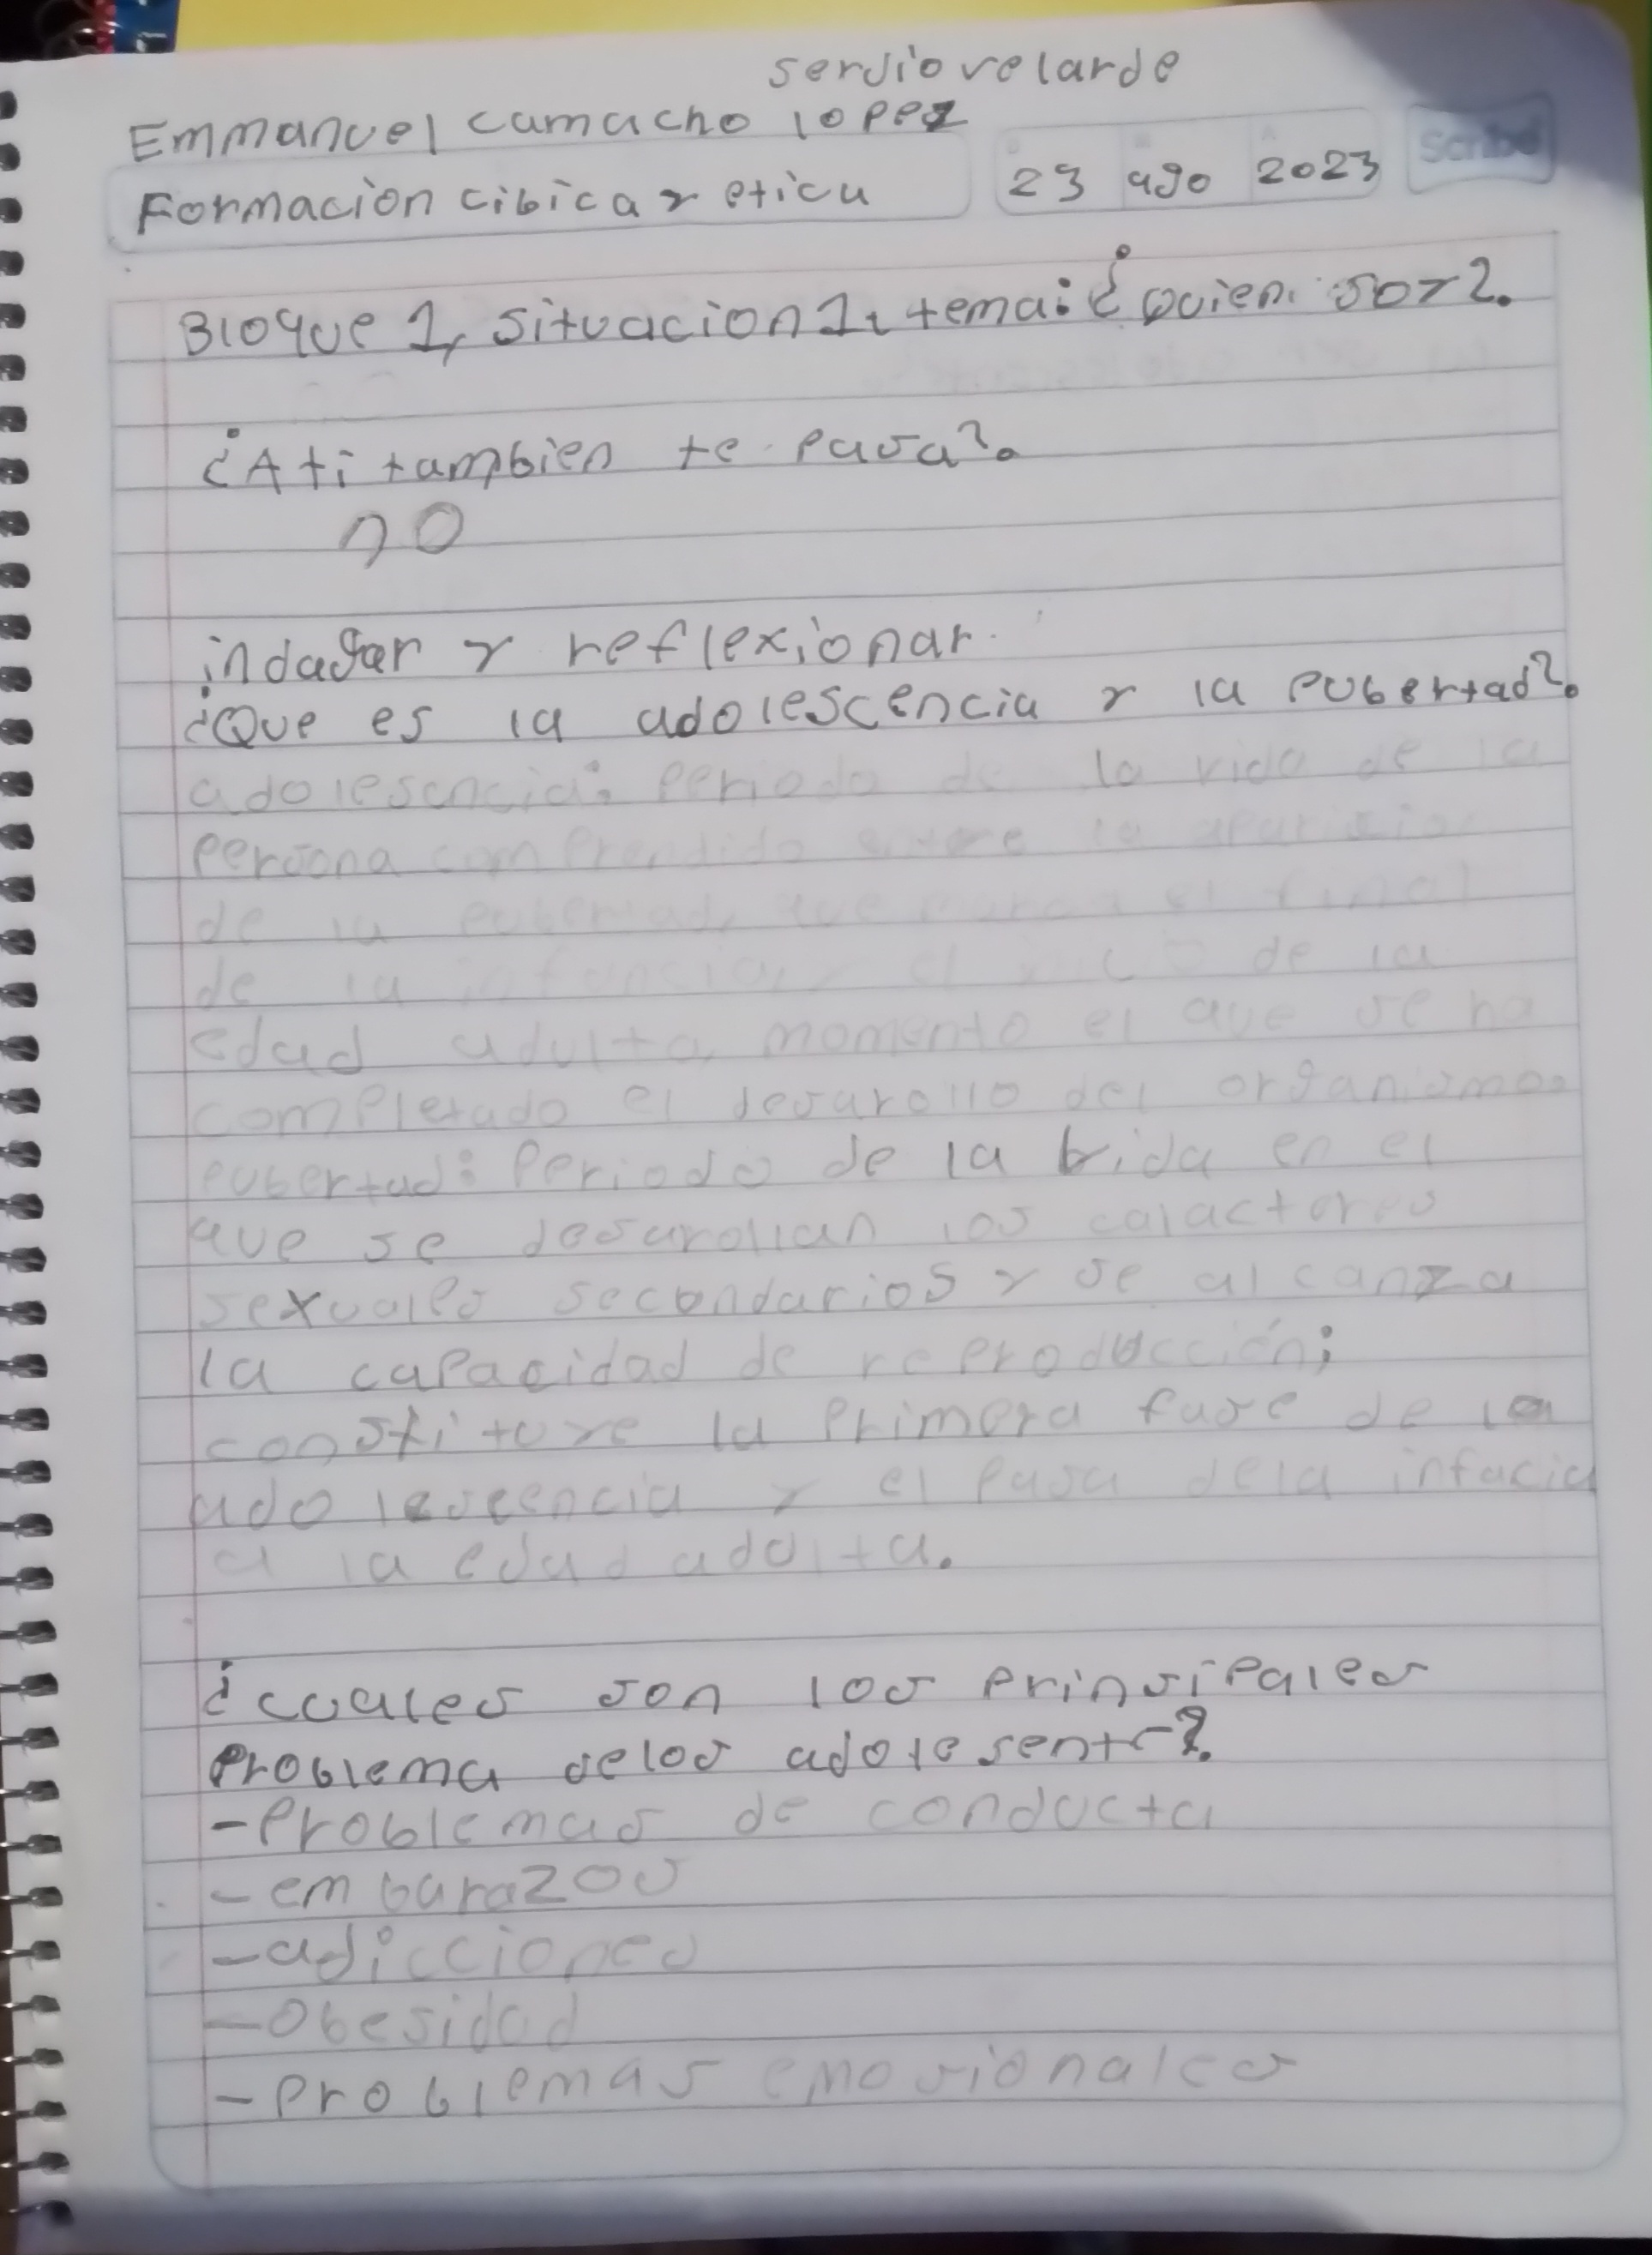 serjio velarde
Emmanuel camacho lopez
Formacion cibica y etica
23 ago 2023
Scribe
Bloque 1, situacion 1, tema: ¿quien soy?.
¿A ti tambien te pasa?.
no
indagar y reflexionar.
¿Que es la adolescencia y la pubertad?.
adolesencia: Periodo de la vida de la
persona comprendido entre la aparision
de la pubertad, que marca el final
de la infancia, y el inicio de la
edad adulta, momento el que se ha
completado el desarollo del organismo.
pubertad: Periodo de la vida en el
que se desarollan los calactores
sexuales secundarios y se alcanza
la capacidad de reproducción;
constituye la primera fase de la
adolescencia y el pasa dela infacia
a la edad adulta.
¿cuales son los prinsipales
problema delos adolesente?.
-Problemas de conducta
-embarazos
-adicciones
-Obesidad
-problemas emosionales